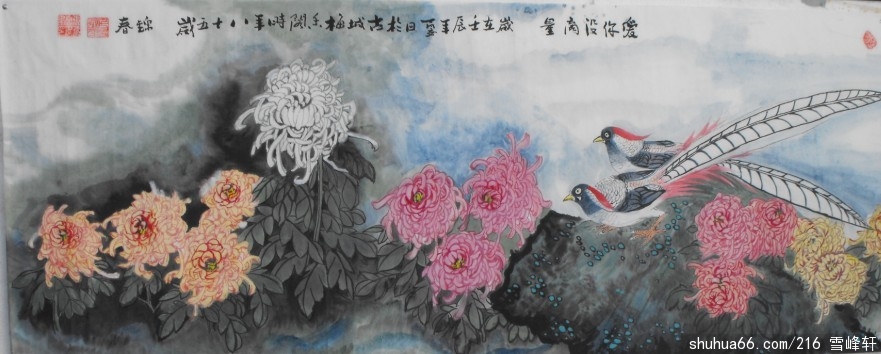 愛你没商量
歲在壬辰年夏日於古城梅香閣時年八十五歲
春
shuhua66.com/216 雪峰轩